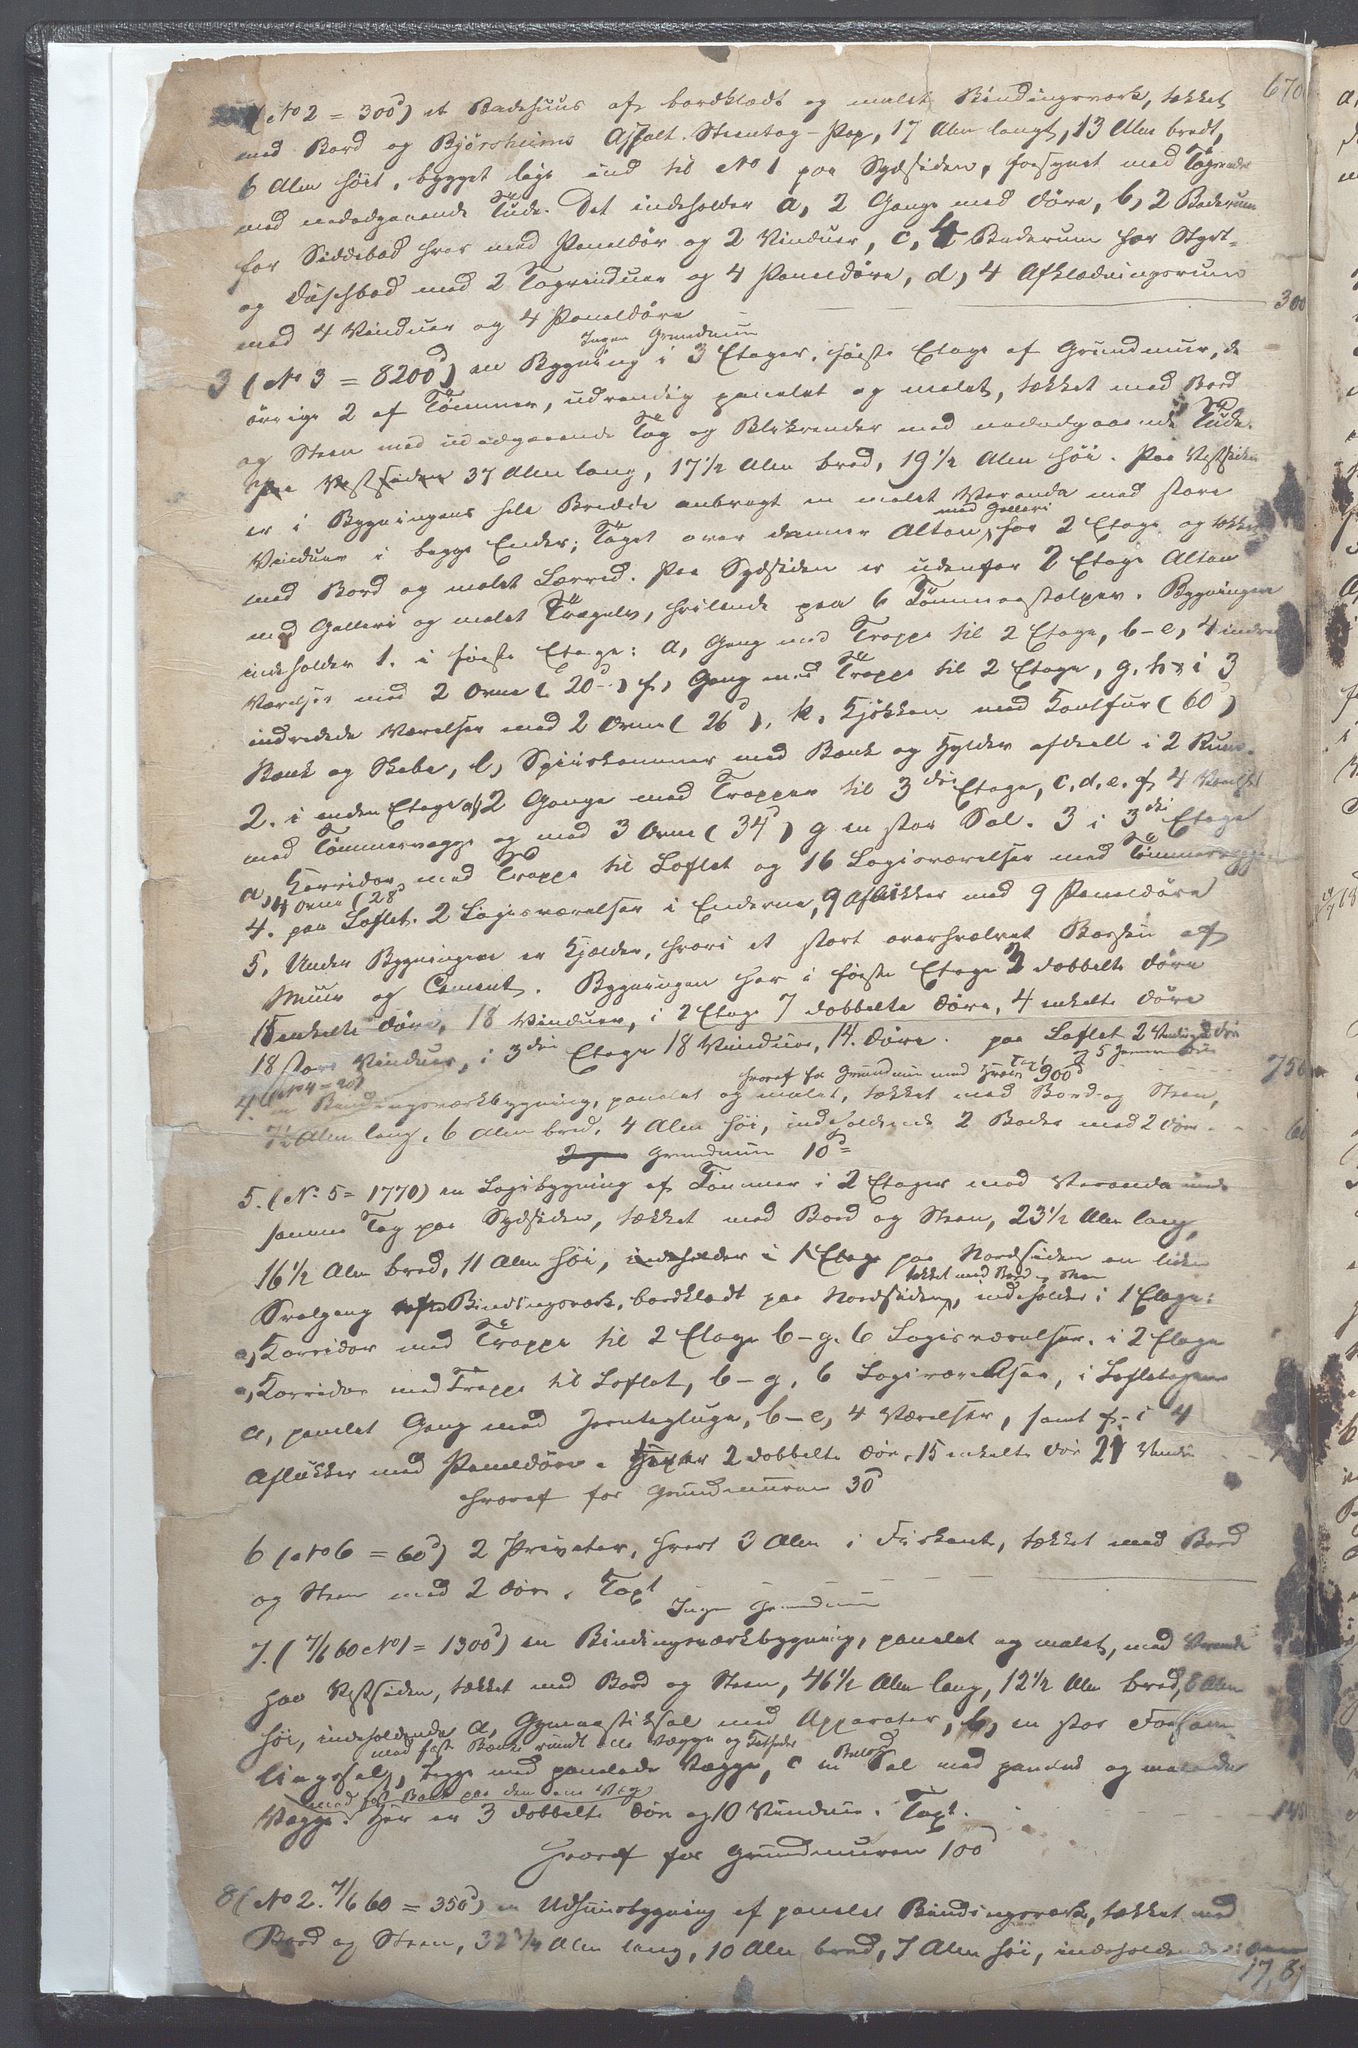 670
(No 2 = 300d) et Badehuus af bordklædt og malet Bindingsværk, tækket
med Bord og Bjørsheims Asfalt Steentag-Pap, 17 Alen langt, 13 Alen bredt,
6 Alen høit, bygget lige ind til No 1 paa Sydsiden, forsynet med Tagrender
med nedadgaaende Tude. Det indeholder a, 2 Gange med Døre, b, 2 Baderum
for Siddebad hver med Paneldør og 2 Vinduer, c, 4 Baderum for Styrt-
og Duschbad med 2 Tagvinduer og 4 Paneldøre, d, 4 Afklædningsrum
med 4 Vinduer og 4 Paneldøre
300
Ingen Grundmuur
3 (No 3 = 8200d) en Bygning i 3 Etager, første Etage af Grundmuur, de
øvrige 2 af Tømmer, udvendig panelet og malet, tækket med Bord
og Steen med udadgaaende Tag og Blikrender med nedadgaaende Tude.
Paa Vestsiden 37 Alen lang, 17 1/2 Alen bred, 19 1/2 Alen høi. Paa Vestsiden
er i Bygningens hele Bredde anbragt en malet Veranda med store
med Galleri
Vinduer i begge Ender; Taget over danner Altan for 2 Etage og tækket
med Bord og malet Lærred. Paa Sydsiden er udenfor 2 Etage Altan
med Galleri og malet Trægulv, hvilende paa 6 Tømmerstolper. Bygningen
indeholder 1. i første Etage: a, Gang med Trappe til 2 Etage, b-e, 4 indre
Værelser med 2 Ovne (20d) f, Gang med Trappe til 2 Etage, g, h, i 3
indredede Værelser med 2 Ovne (26d), k, Kjøkken med Komfur (60d)
Bænk og Skabe, l, Spiiskammer med Bænk og Hylder afdeelt i 2 Rum.
2. i anden Etage a, 2 Gange med Trapper til 3die Etage, c, d, e, f, 4 Værelser
med Tømmervægge og med 3 Ovne (34d) g en stor Sal. 3 i 3die Etage
a, Korridor med Trappe til Loftet og 16 Logisværelser med Tømmervægge
4 Ovne (28d
4. paa Loftet. 2 Logisværelser i Enderne, 9 Aflukker med 9 Paneldøre
5. Under Bygningen er Kjælder, hvori et stort overhvælvet Bassin af
Muur og Cement. Bygningen har i første Etage 2 dobbelte Døre
15 enkelte Døre, 18 Vinduer, i 2 Etage 7 dobbelte Døre, 4 enkelte Døre
18 store Vinduer, i 3die Etage 18 Vinduer, 14 Døre. paa Loftet 2 Vinduer
hvoraf for Grundmuur med 900d
750
4. (No 4 = en Bindingsværkbygning, panelet og malet, tækket med Bord og Steen,
7 1/2 Alen lang, 6 Alen bred, 4 Alen høi, indeholdende 2 Bade med 2 Døre
60
Grundmuur 10d
5. (No 5 = 1770) en Logibygning af Tømmer i 2 Etager med Veranda under
samme Tag paa Sydsiden, tækket med Bord og Steen, 23 1/2 Alen lang,
16 1/2 Alen bred, 11 Alen høi, indeholder i 1 Etage paa Nordsiden en liden
tækket med Bord og Steen
Svalgang af Bindingsværk, bordklædt paa Nordsiden, indeholder i 1 Etage:
a, Korridor med Trappe til 2 Etage b-g, 6 Logisværelser. i 2 Etage
a, Korridor med Trappe til Loftet, b-g, 6 Logiværelser, i Loftetagen
a, panelet Gang med Jerntagluge, b-e, 4 Værelser, samt f-i 4
Aflukker med Paneldøre. Her er 2 dobbelte Døre, 15 enkelte Døre 21 Vinduer
hvoraf for Grundmuren 30d
6 (No 6 = 60d) 2 Privater, hvert 3 Alen i Fiirkant, tækket med Bord
og Steen med 2 Døre. Taxt
Ingen Grundmuur
7. (7/6 60 No 1 = 1300d) en Bindingsværkbygning, panelet og malet, med Veranda
paa Vestsiden, tækket med Bord og Steen, 46 1/2 Alen lang, 12 1/2 Alen bred, 8 Alen
høi, indeholdende a, Gymnastiksal med Apparater, b, en stor Forsam-
med fast Bænk rundt alle Vægge og
lingssal, begge med panelede Vægge, c en Sal med panelede og malede
med fast Bænk paa den ene Væg
Vægge. Her er 3 dobbelte Døre og 10 Vinduer. Taxt.
145
hvoraf for Grundmuren 100d
8 (No 2. 7/6 60 = 350d) en Udhuusbygning af panelet Bindingsværk, tækket med
Bord og Steen, 32 3/4 Alen lang, 10 Alen bred, 7 Alen høi, indeholdende:
17,8